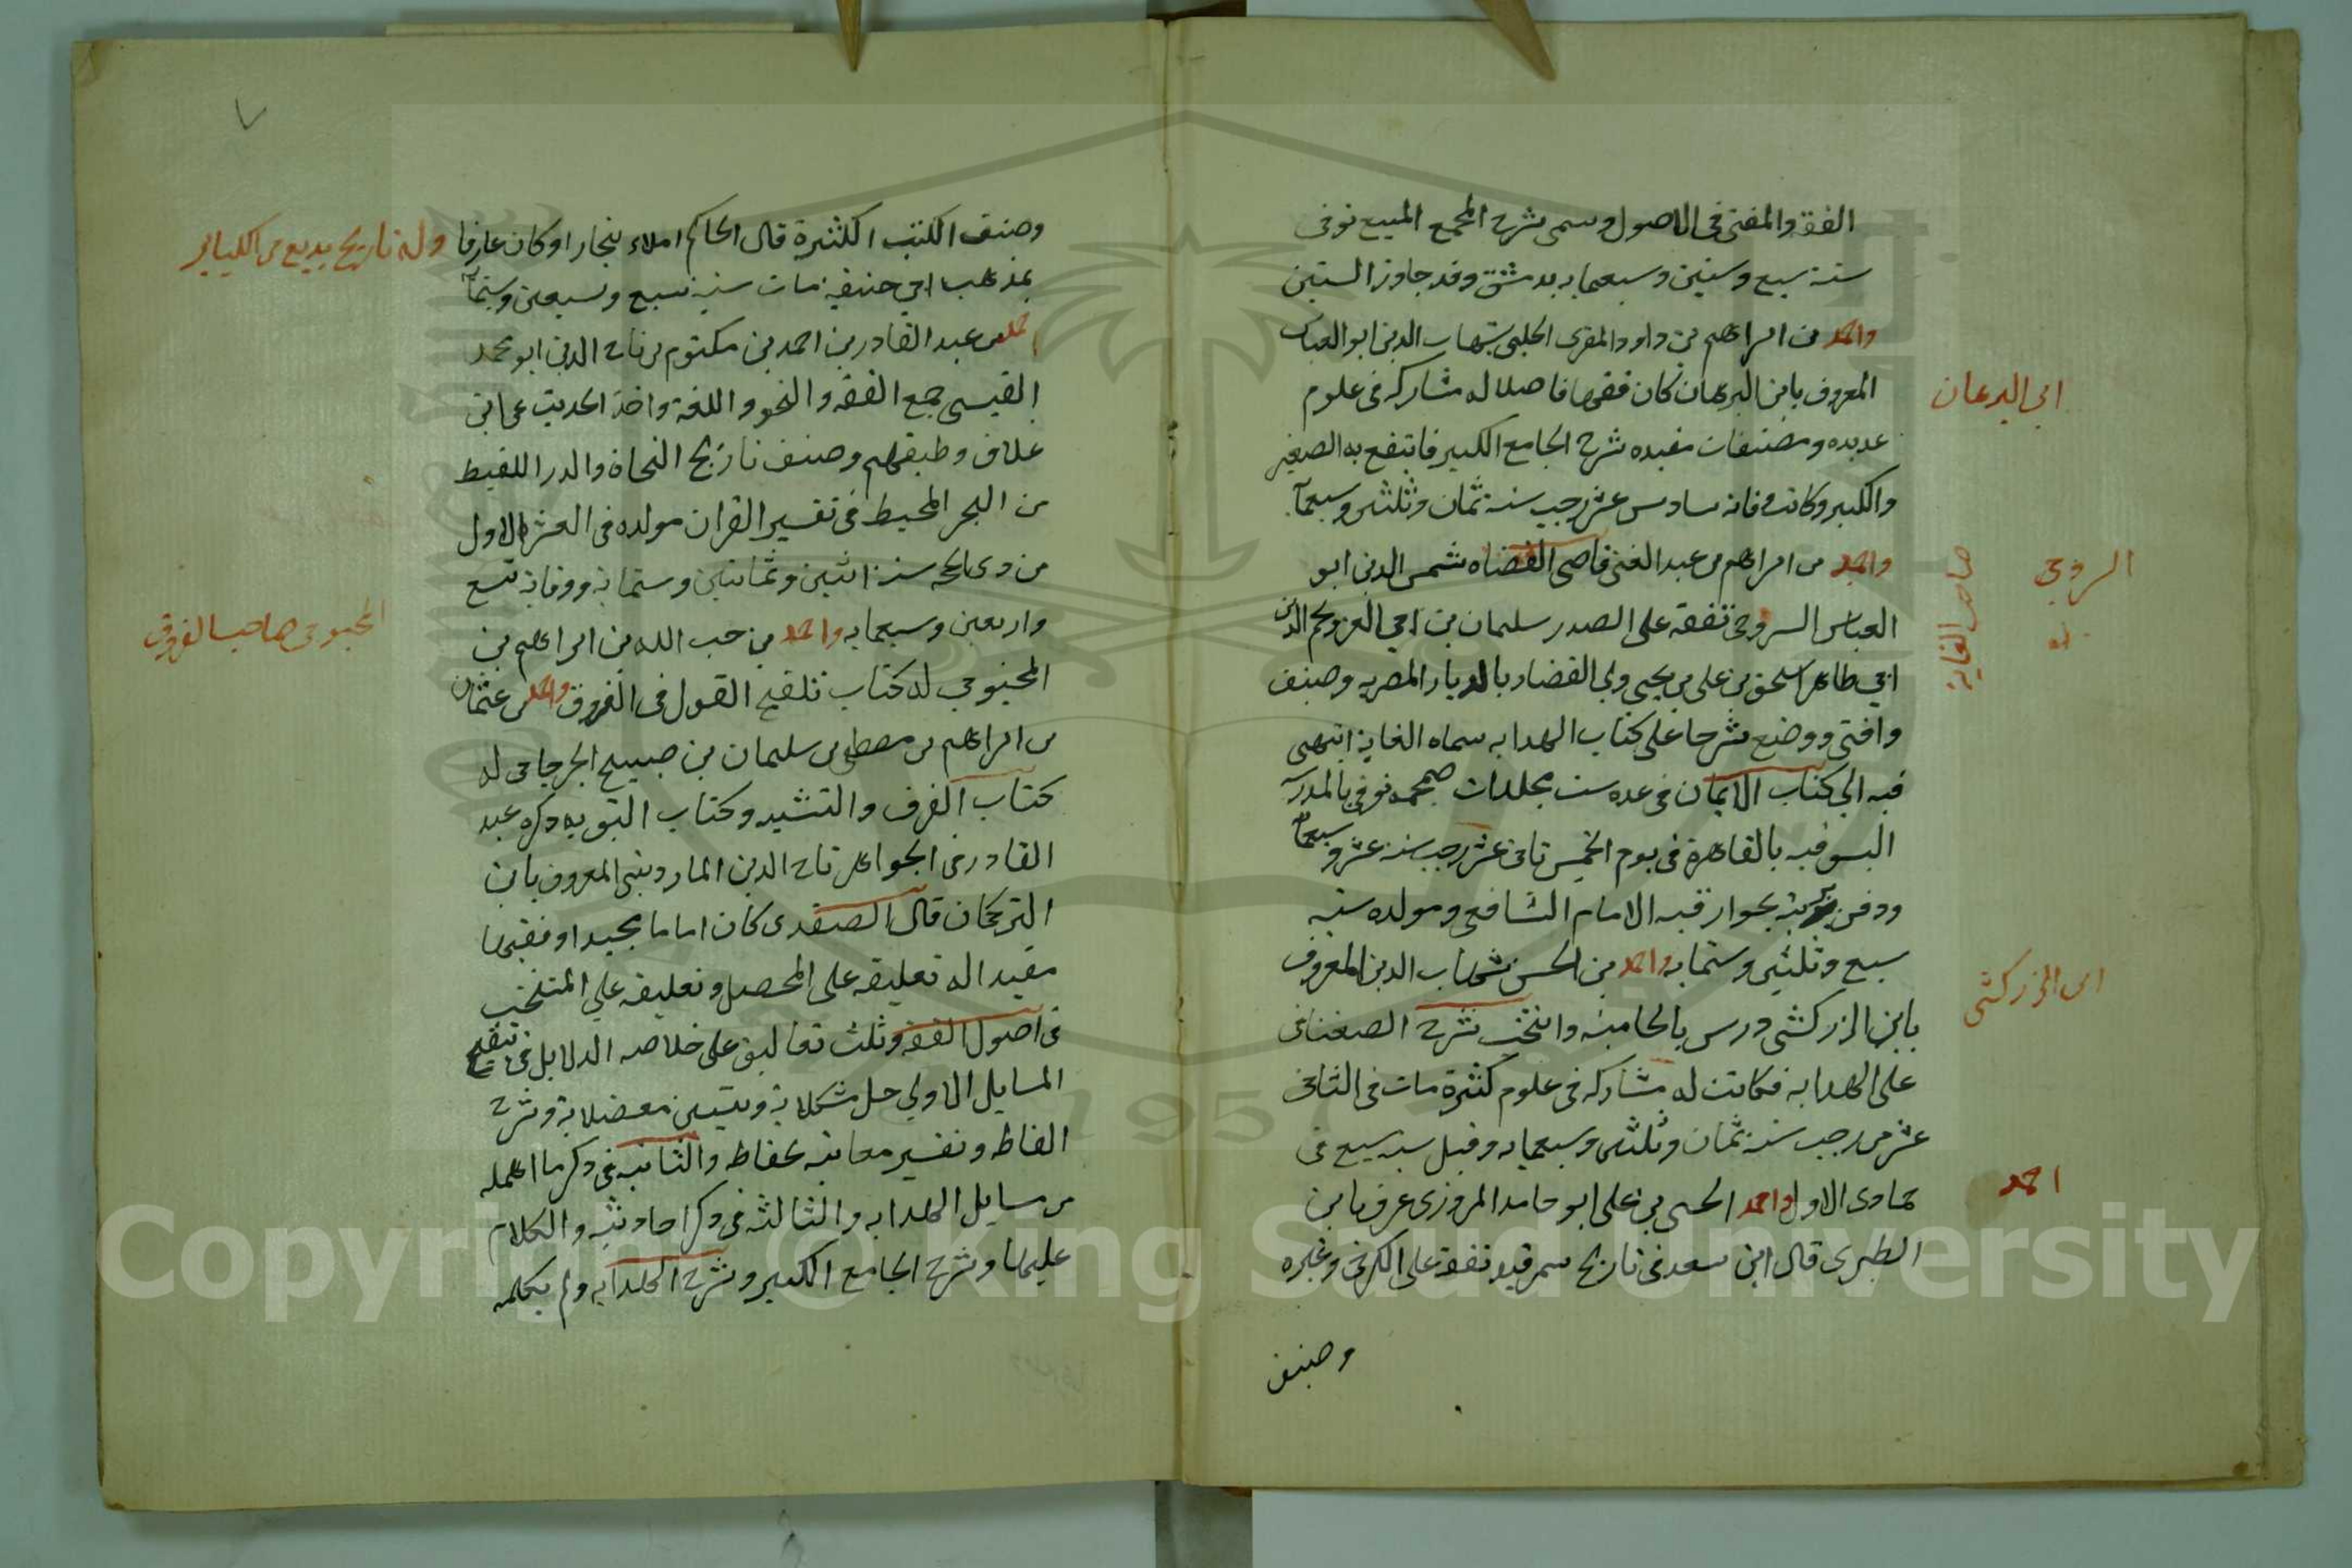 الفقه والمفتى فى الاصول وسمى بشرح المجمع المنبع توفى
سنة سبع وستين وسبعمايه بدمشق وقد جاوز الستين
واحمد من ابراهيم بن داود المقرى الحلبى شهاب الدين ابو العباس
المعروف بابن البرهان كان فقيها فاضلا له مشاركه فى علوم
عديده ومصنفات مفيده شرح الجامع الكبير فانتفع به الصغير
والكبير وكانت وفاته سادس عشر رجب سنة ثمان وثلثين وسبعمآ
واحمد بن ابراهيم بن عبد الغنى قاضى القضاه شمس الدين ابو
العباس السروجى تفقه على الصدر سليمان بن ابي العز ونجم الدين
ابي طاهر اسحق بن على بن يحيى ولي القضاء بالديار المصريه وصنف
وافتى ووضع شرحا على كتاب الهدايه سماه الغاية انتهى
فيه الي كتاب الايمان فى عده ست مجلدات ضخمه توفى بالمدرسة
السيوفيه بالقاهرة فى يوم الخميس ثانى عشر رجب سنة عشر وسبعمآ
ودفن بتربته بجوار قبه الامام الشافعى ومولده سنه
سبع وثلثين وستمايه واحمد بن الحسن شهاب الدين المعروف
بابن الزركشى درس بالحاميه وانتخب شرح الصغناقى
على الهدايه فكانت له مشاركه فى علوم كثيرة مات فى الثانى
عشر من رجب سنة ثمان وثلثين وسبعمايه وقيل سنه سبع فى
جمادى الاول واحمد الحسين بن على ابو حامد المروزى عرف بابن
الطبرى قال ابن سعد فى تاريخ سمرقند تفقه على الكرخى وغيره
وصنف
ابن البرهان
السروجي
صاحب الغاية
ابن الزركشى
احمد
وصنف الكتب الكثيرة قال الحاكم املاء ببخارا وكان عارفا
وله تاريخ بديع من
بمذهب ابي حنيفه مات سنه سبع وسبعين وستمآ
احمد بن عبد القادر بن احمد بن مكتوم بن تاج الدين ابو محمد
القيسى جمع الفقه والنحو واللغة واخذ الحديث عن ابن
علاق وطبقتهم وصنف تاريخ النحاة والدر اللقيط
من البحر المحيط فى تفسير القران مولده فى العشر الاول
من ذى الحجه سنة اثنين وثمانين وستماية ووفاته تسع
واربعين وسبعمايه واحمد بن عبد الله بن ابراهيم بن
المحبوبي له كتاب تلقيح القول فى الفروق واحمد بن عثمان
بن ابراهيم بن مصطفى بن سليمان بن صبيح الجرجانى له
كتاب الفرق والتشيد وكتاب التوبه ذكره عبد
القادر فى الجواهر تاج الدين الماردينى المعروف بابن
التركمان قال الصفدى كان اماما مجيدا وفقيها
مفيدا له تعليقه على المحصل وتعليقه علي المنتخب
فى اصول الفقه وثلث تعاليق على خلاصه الدلايل فى تنقيح
المسايل الاولي حل مشكلاته وتبيين معضلاته وشرح
الفاظه وتفسير معانيه لحفاظه والثانيه فى ذكر ما اهمله
من مسايل الهدايه والثالثه فى ذكر احاديثه والكلام
عليها وشرح الجامع الكبير وشرح الهدايه ولم يكمله
المحبوبى صاحب الفروق
٧